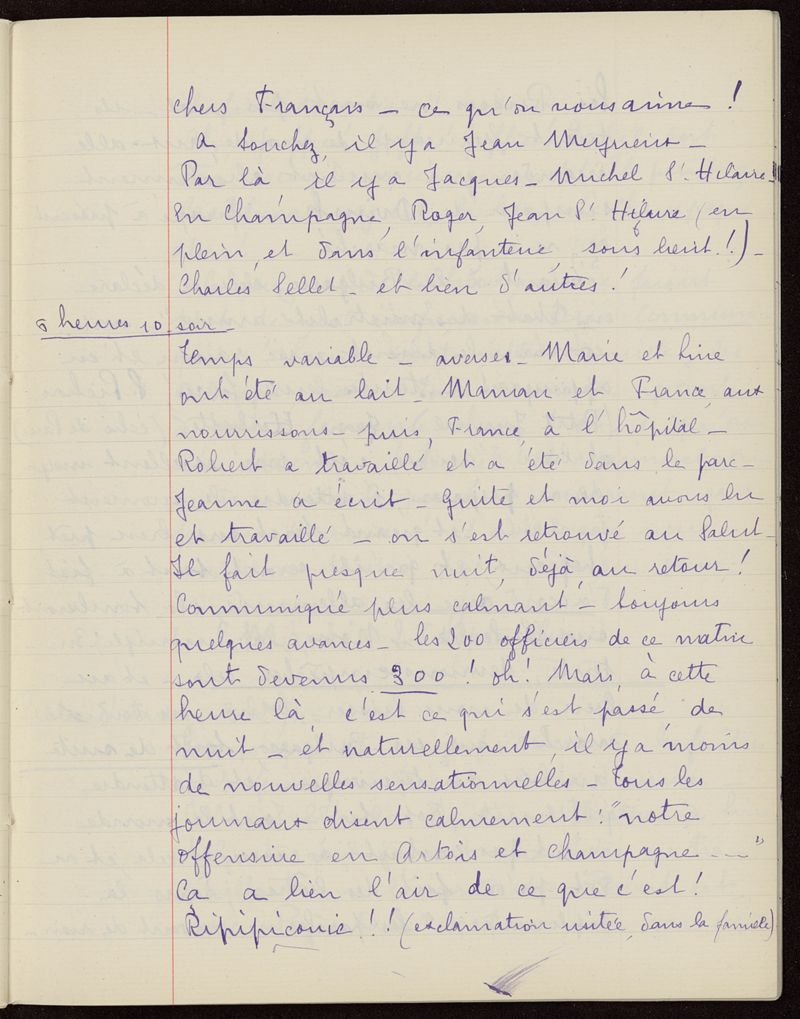 chers Français – ce qu'on vous aime !
A Souchez, il y a Jean Meynieux –
Par là il y a Jacques – Michel St Hilaire –
En Champagne, Roger, Jean St Hilaire (en
plein, et dans l'infanterie, sous lieut. !) –
Charles Sellet – et bien d'autres !
5 heures 10 soir –
Temps variable – averses – Marie et Line
ont été au lait – Maman et France, aux
nourrissons – puis, France, à l'hôpital –
Robert a travaillé et a été dans le parc –
Jeanne a écrit – Guite et moi avons lu
et travaillé – on s'est retrouvé au Salut –
Il fait presque nuit, déjà, au retour !
Communiqué plus calmant – toujours
quelques avances – les 200 officiers de ce matin
sont devenus 300 ! oh ! Mais, à cette
heure là, c'est ce qui s'est passé, de
nuit – et naturellement, il y a moins
de nouvelles sensationnelles – Tous les
journaux disent calmement : "notre
offensive en Artois et Champagne ---"
Ça a bien l'air de ce que c'est !
Ripipiconie ! ! (exclamation usitée, dans la famille)